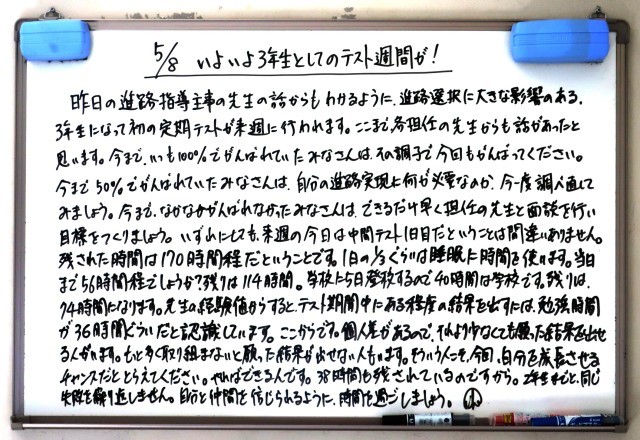 5/8 いよいよ3年生としてのテスト週間が!
昨日の進路指導主事の先生の話からもわかるように、進路選択に大きな影響のある、
3年生になって初の定期テストが来週に行われます。ここまで各担任の先生からも話があったと
思います。今まで、いつも100%でがんばれていたみなさんは、その調子で今回もがんばってください。
今まで50%でがんばれていたみなさんは、自分の進路実現に何が必要なのか、今一度調べ直して
みましょう。今まで、なかなかがんばれなかったみなさんは、できるだけ早く担任の先生と面談を行い
目標をつくりましょう。いずれにしても、来週の今日は中間テスト1日目だということは間違いありません。
残された時間は170時間程だということです。1日の1/3ぐらいは睡眠に時間を使います。当日
まで56時間程でしょうか?残りは114時間。学校に5日登校するので40時間は学校です。残りは、
74時間になります。先生の経験値からすると、テスト期間中にある程度の結果を出すには、勉強時間
が36時間ぐらいだと認識しています。ここからです。個人差があるので、それより少なくても願った結果を出せ
る人がいます。もっと多く取り組まないと願った結果が出せない人もいます。そういう人こそ、今回、自分を成長させる
チャンスだととらえてください。やればできるんです。38時間も残されているのですから。2年生までと、同じ
失敗を繰り返しません。自分と仲間を信じられるように、時間を過ごしましょう。